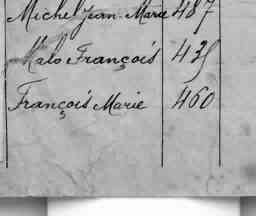 Michel Jean-Marie 487
Malo François 435
François Marie 460